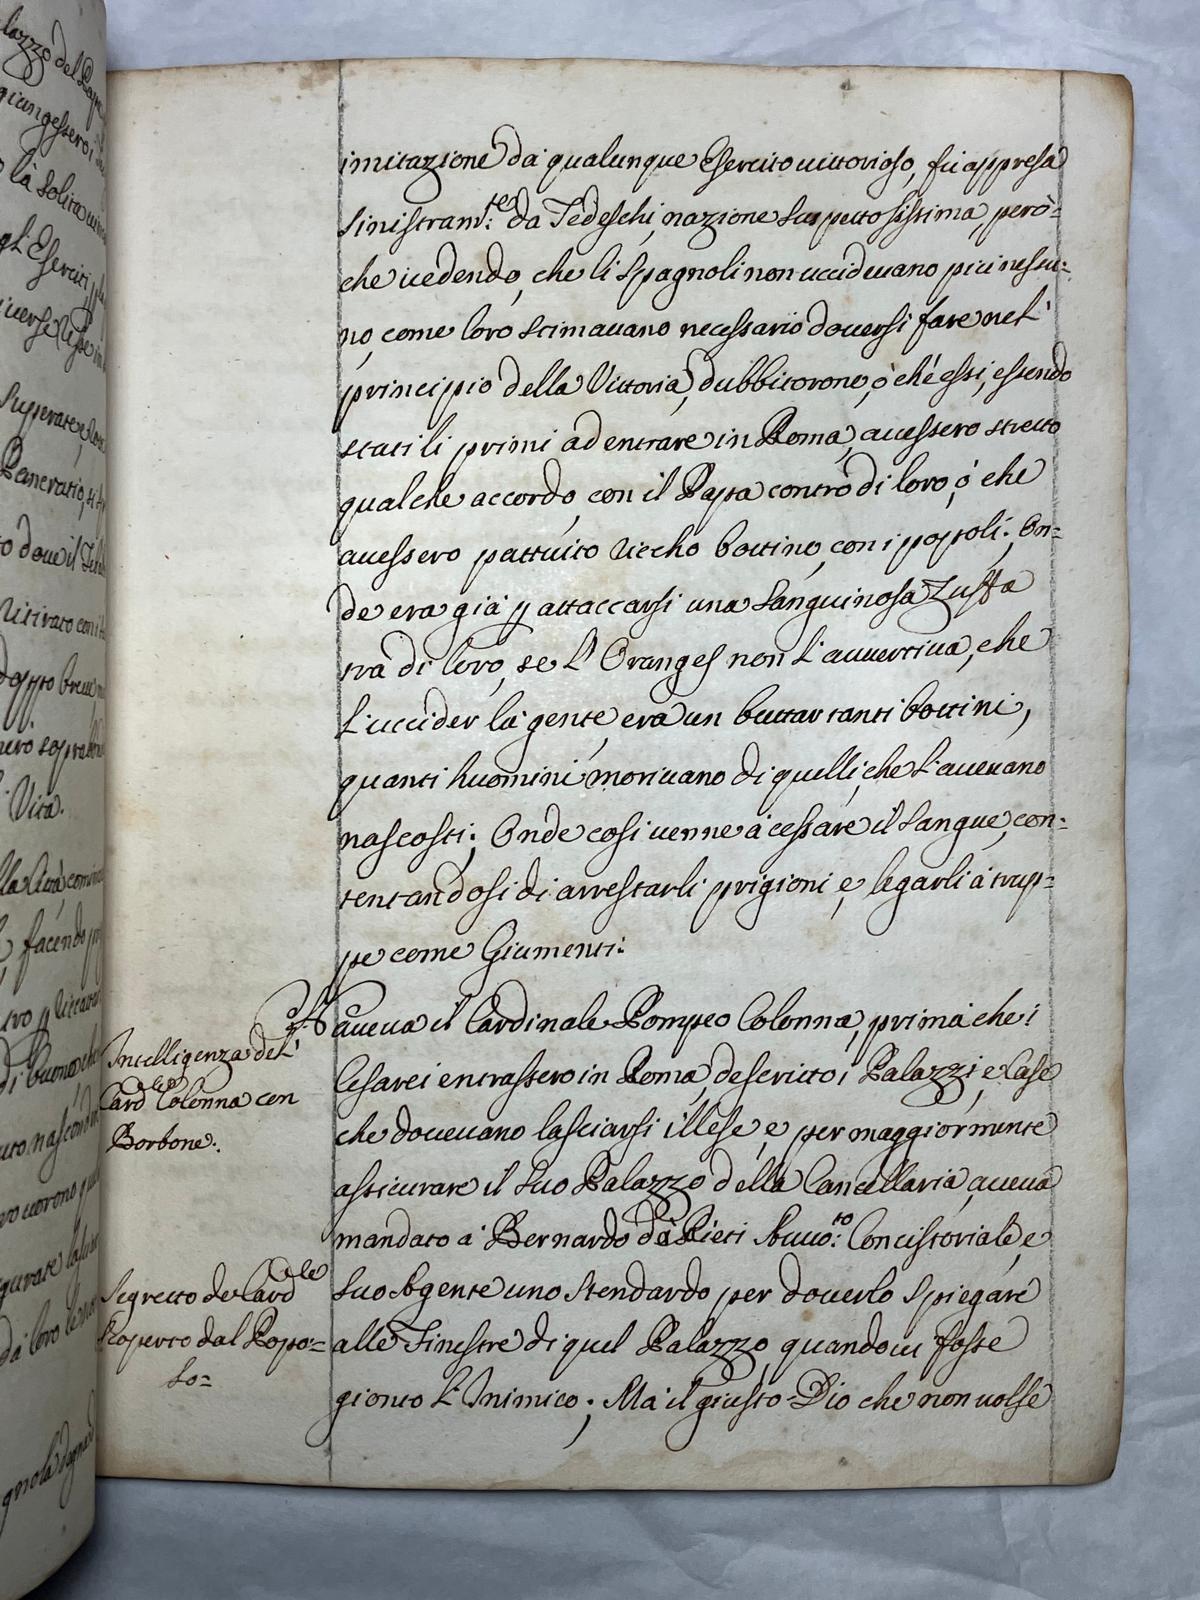 imitazione da qualunque Esercito uittorioso, fu appresa
sinistram.te da Tedeschi, nazione suspettosissima, però=
che uedendo, che li Spagnoli non uccideuano piu nessu=
no, come loro stimauano necessario douersi fare nel'
principio della Vittoria, dubbitorono, ò che essi, essendo
stati li primi ad entrare in Roma, auessero stretto
qualche accordo, con il Papa contro di loro, ò che
auessero pattuito ricco bottino, con i popoli; On=
de era già p attaccarsi una sanguinosa Zuffa
trà di loro, se l'Oranges non l'auuertiua, che
l'uccider la gente, era un buttar tanti bottini,
quanti huomini moriuano di quelli, che l'aueuano
nascosti; Onde cosi uenne à cessare il sangue, con=
tentandosi di arrestarli prigioni, e legarli à trup=
pe come Giumenti:
Haueua il Cardinale Pompeo Colonna, prima che i
Cesarei entrassero in Roma, descritto i Palazzi, e Case
che doueuano lasciarsi illese, e per maggiormente
assicurare il suo Palazzo della Cancellaria, aueua
mandato à Bernardo da Rieti Auuo.to Concistoriale, e
suo Agente uno stendardo per douerlo spiegare
alle Finestre di quel Palazzo, quando ui fosse
gionto l'Inimico; Ma il giusto Dio che non uolse
Intelligenza del'
Card.le Colonna con
Borbone:
Segretto del Card.le
scoperto dal Popo=
lo=